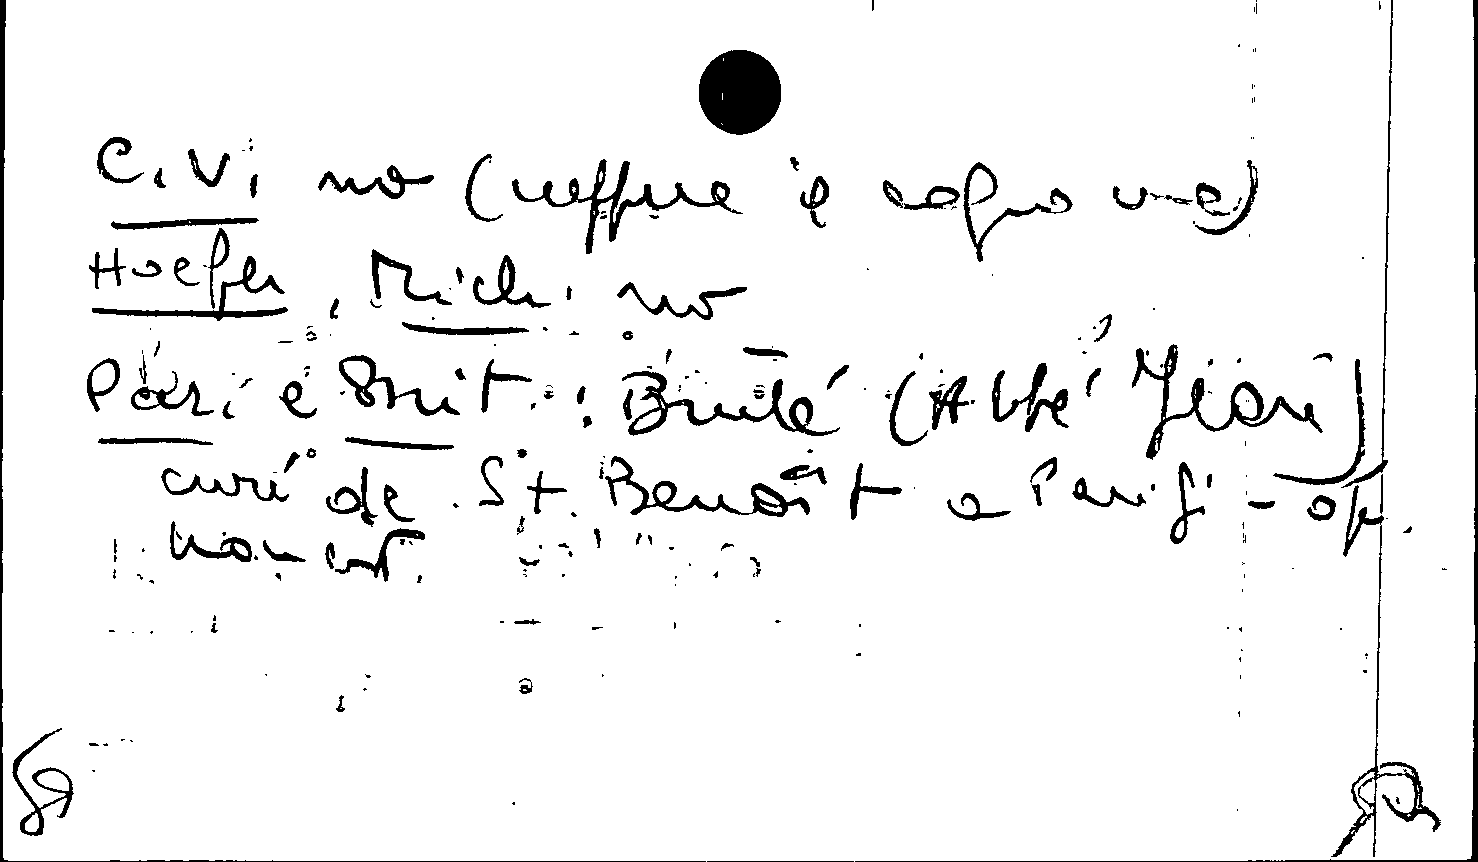 C.V. no (neppure il cognome)
Hoefer, Mich. no
Pari e Brit.: Bruté (Abbé Jean)
curé de St. Benoît a Parigi - op.
non cit.